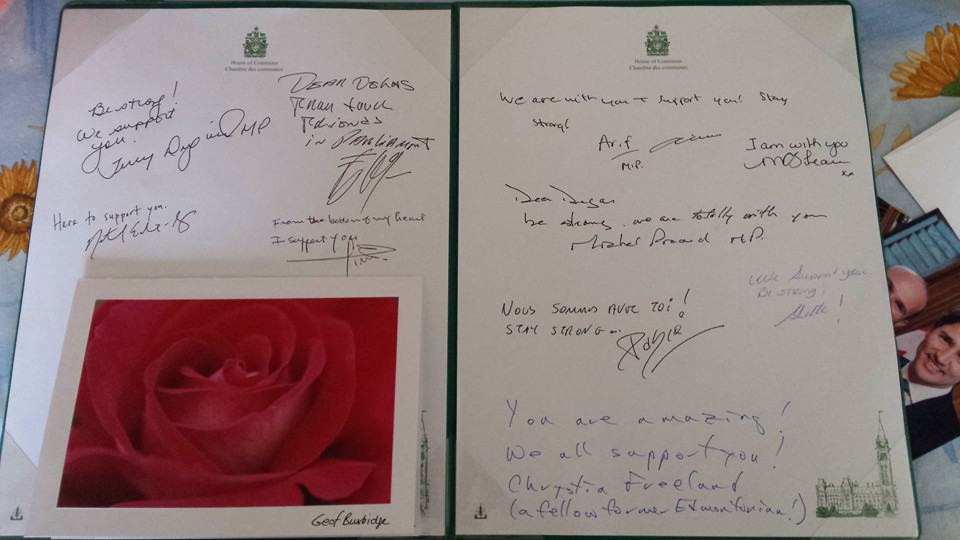 House of Commons
Chambre des communes
Be strong!
We support
you.
Terry MP
DEAR
FROM YOUR
FRIENDS
IN PARLIAMENT
Here to support you.
From the bottom of my heart
I support you
Geof Burbidge
House of Commons
Chambre des communes
We are with you + support you! Stay
strong!
Arif
M.P.
I am with you
xx
Dear
be strong. we are totally with you
MP.
We support you.
Be strong!
NOUS SOMMES AVEC TOI!
STAY STRONG
You are amazing!
We all support you!
Chrystia Freeland
(a fellow former Edmontonian!)